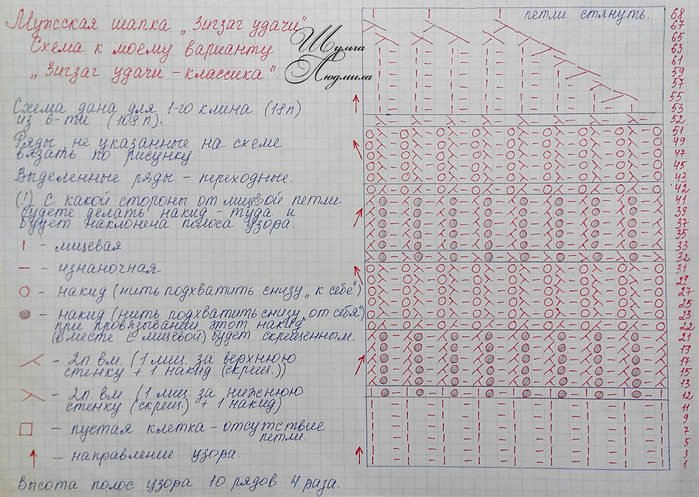 Мужская шапка „Зигзаг удачи"
Схема к моему варианту
„Зигзаг удачи – классика".
Шульга
Людмила
Схема дана для 1-го клина (18п)
из 6-ти (108п).
Ряды не указанные на схеме
вязать по рисунку.
Выделенные ряды – переходные.
(!) С какой стороны от лицевой петли
будете делать накид – туда и
будет наклонена полоса узора.
– лицевая
– изнаночная
– накид (нить подхватить снизу „к себе")
– накид (нить подхватить снизу „от себя")
при провязывании этот накид
(вместе с лицевой) будет скрещенным.
– 2п вм. (1 лиц. за верхнюю
стенку + 1 накид (скрещ.))
– 2п вм (1 лиц. за нижнюю
стенку (скрещ.) + 1 накид)
– пустая клетка – отсутствие
петли.
– направление узора.
Высота полос узора 10 рядов 4 раза.
петли стянуть.
68
67
65
63
61
59
57
55
53
52
51
49
47
45
42
41
39
37
35
33
32
31
29
27
25
23
22
21
19
17
15
13
12
11
9
7
5
3
1